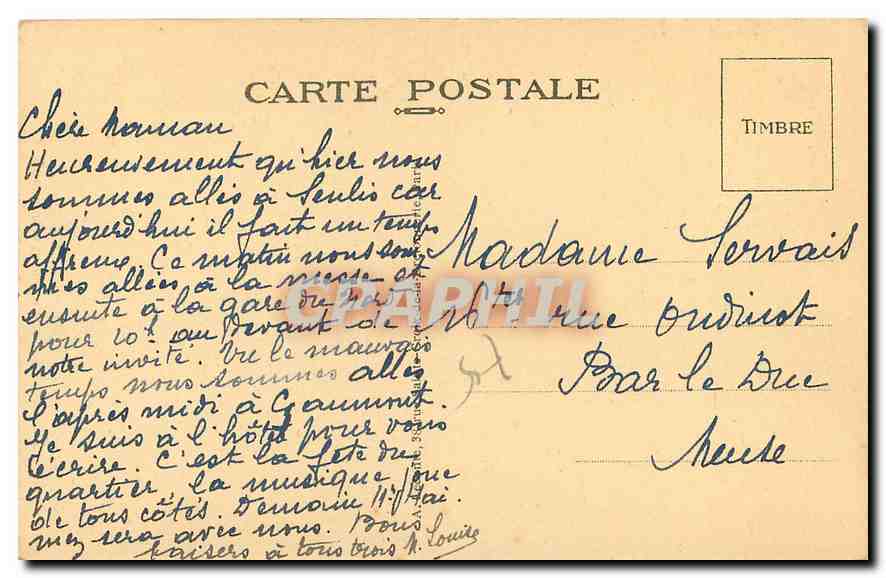 CARTE POSTALE
TIMBRE
Chère Maman
Heureusement qu'hier nous
sommes allés à Senlis car
aujourd'hui il fait un temps
affreux. Ce matin nous som
mes allées à la messe et
ensuite à la gare du Nord
pour 10h au devant de
notre invité. Vu le mauvais
temps nous sommes allés
l'après midi à Chaumont.
Je suis à l'hôtel pour vous
écrire. C'est la fête du
quartier, la musique joue
de tous côtés. Demain
sera avec nous. Bons
baisers à tous trois M. Louise
Madame Servais
16 ter rue Oudinot
Bar le Duc
Meuse
CPARHII